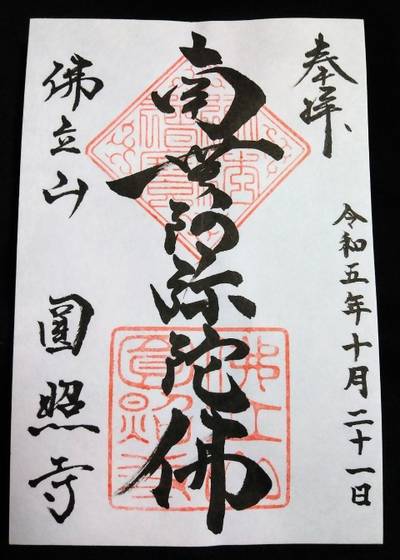 奉拝
令和五年十月二十一日
南无阿弥陀佛
佛立山
圓照寺